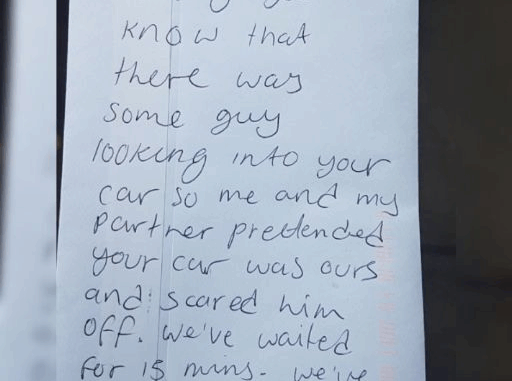 know that
there was
some guy
looking into your
car so me and my
partner pretended
your car was ours
and scared him
off. we've waited
for 15 mins. we've